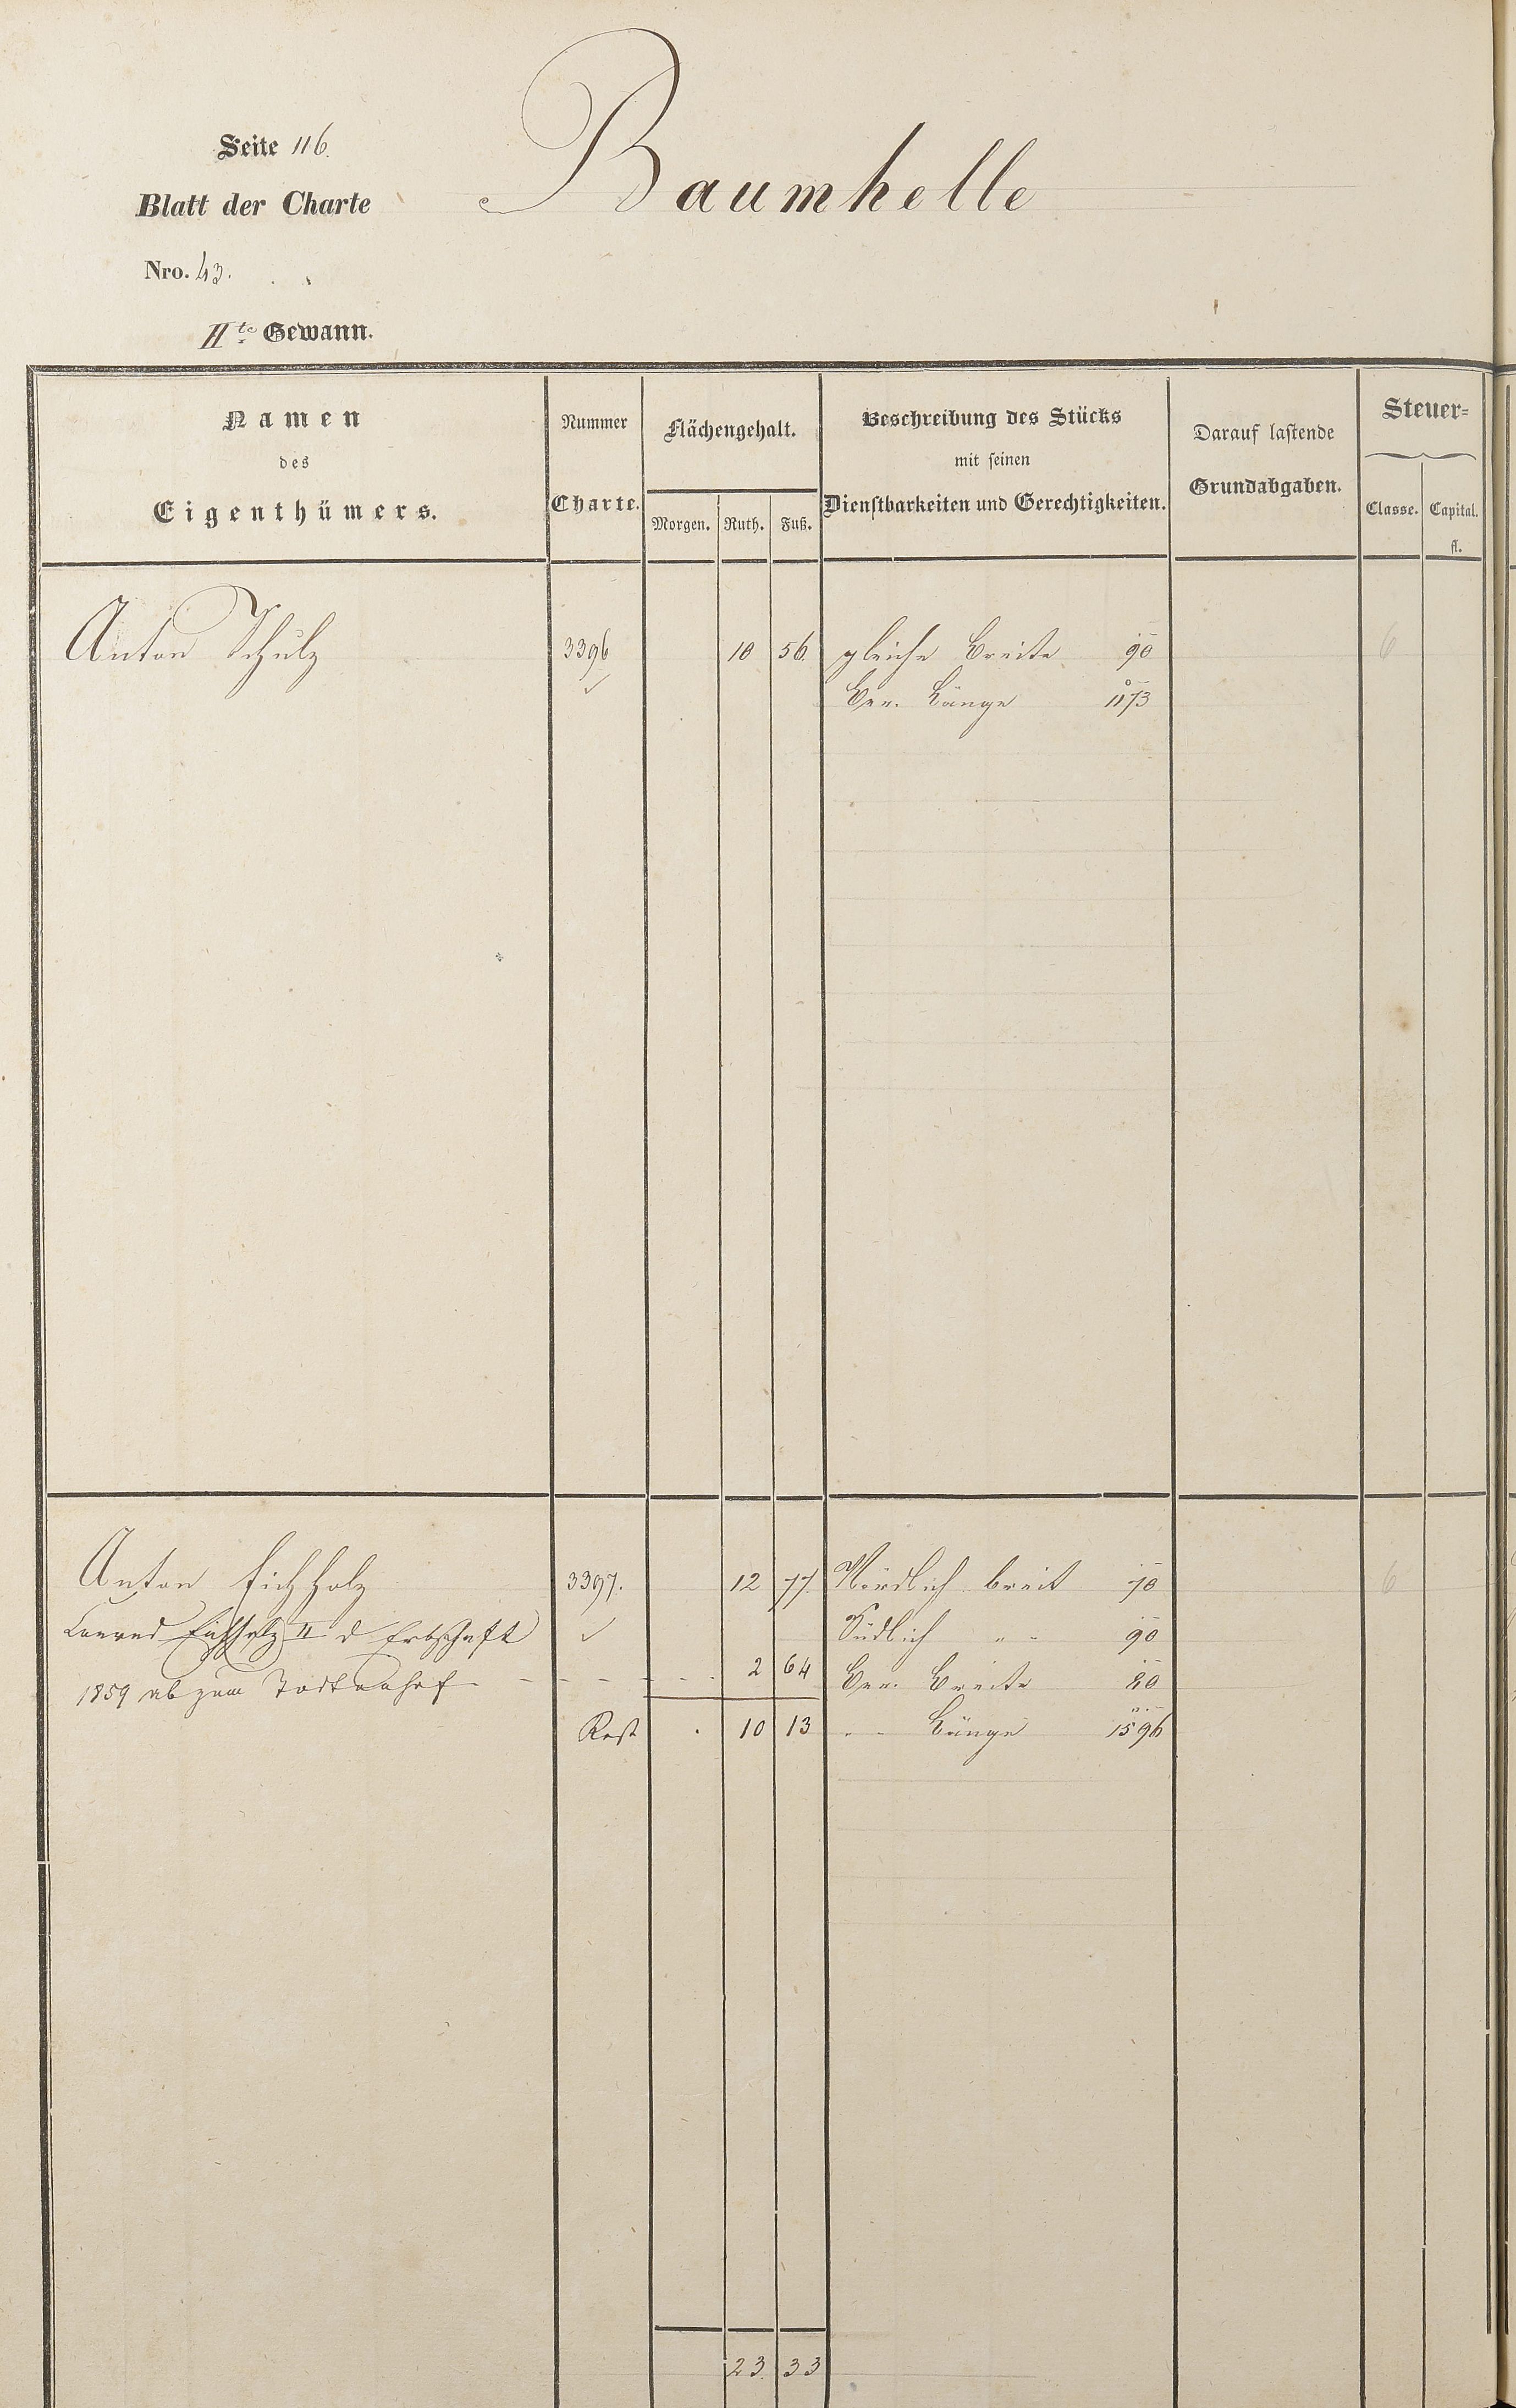 Seite 116.
Baumhelle
Blatt der Charte
Nro. 43.
IIte Gewann.
Namen
des
Eigenthümers.
Nummer
Charte.
Flächengehalt.
Morgen. Ruth. Fuß.
Beschreibung des Stücks
mit seinen
Dienstbarkeiten und Gerechtigkeiten.
Darauf lastende
Grundabgaben.
Steuer-
Classe. Capital.
fl.
Anton Schulz 3396 10 56. gleiche Breite 90 6
Ber. Länge 1173
Anton Eichholz 3397. 12 77. Nördlich breit 70 6
Conrad Eichholz II d Erbschaft Südlich " - 90
1859 ab zum Todtenhof - - - - - 2 64 Ber. Breite 80
Rest . 10 13 " - Länge 1596
23. 33